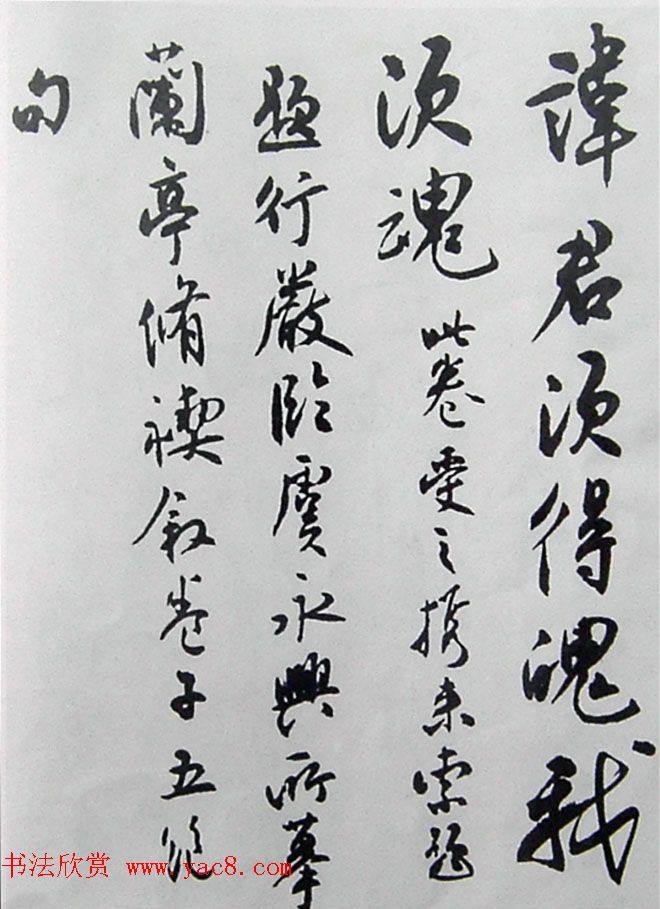 諱君須得魄我
須魂 此卷受之携来索題
題行嚴臨虞永興所摹
蘭亭脩禊敘卷子五絕
句
书法欣赏 www.yac8.com